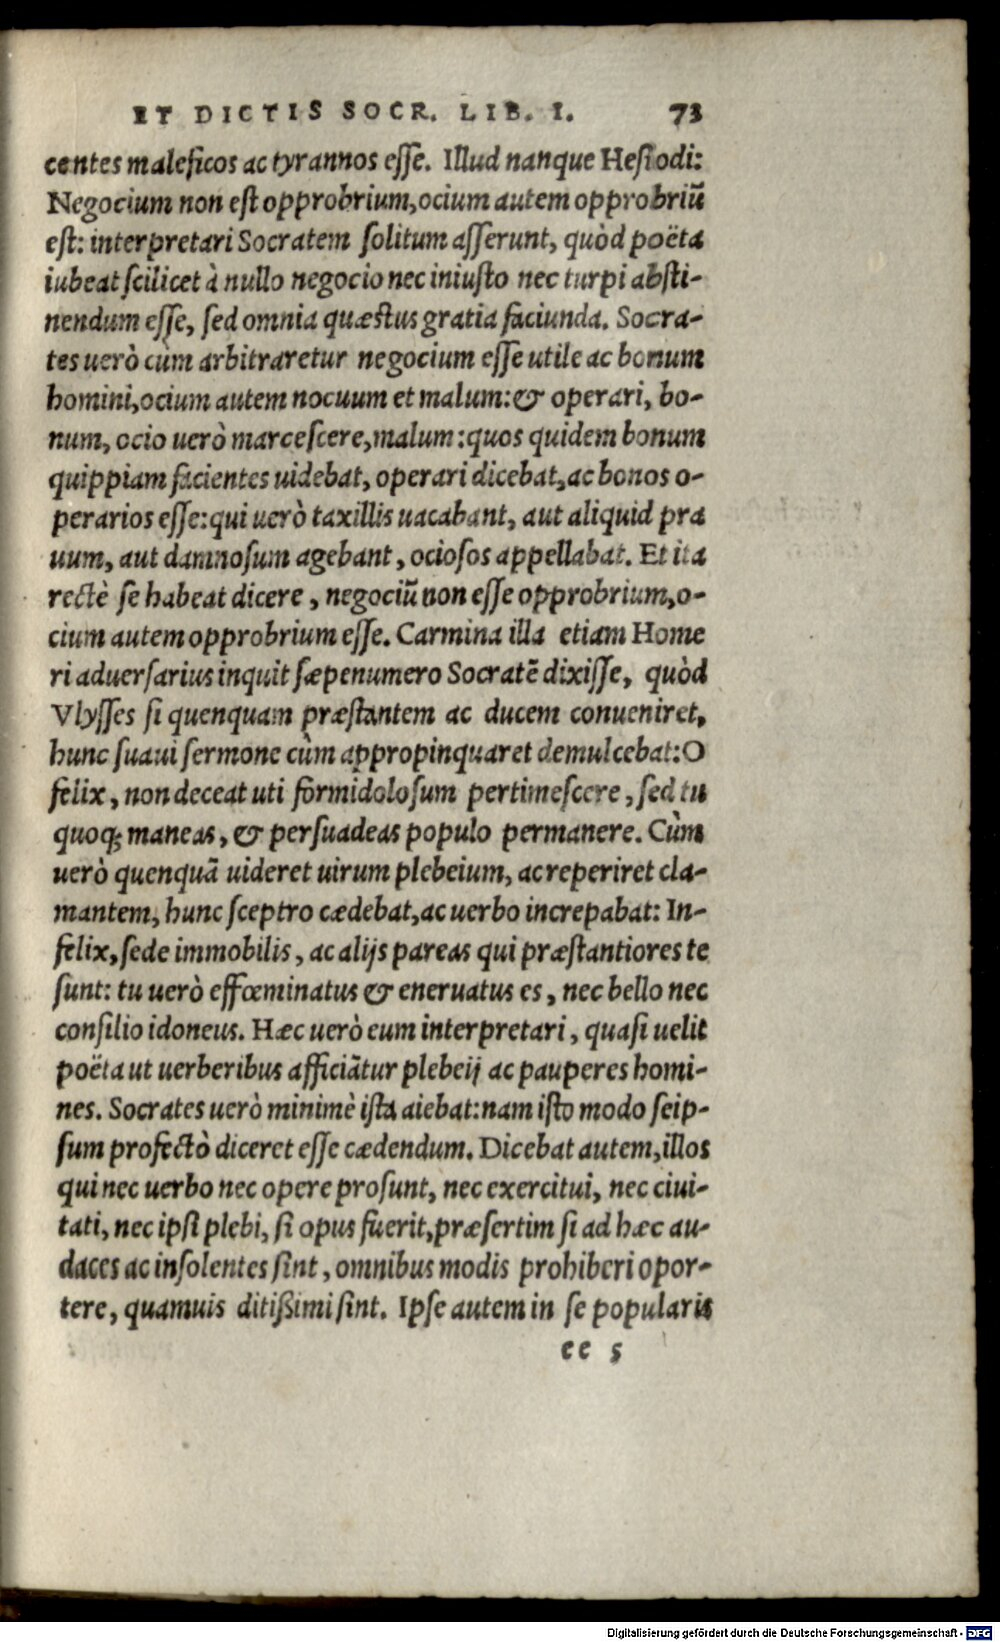 ET DICTIS SOCR. LIB. I. 73
centes maleficos ac tyrannos esse. Illud nanque Hesiodi:
Negocium non est opprobrium, ocium autem opprobriũ
est: interpretari Socratem solitum asserunt, quòd poëta
iubeat scilicet à nullo negocio nec iniusto nec turpi absti-
nendum esse, sed omnia quæstus gratia faciunda. Socra-
tes uerò cùm arbitraretur negocium esse utile ac bonum
homini, ocium autem nocuum et malum: & operari, bo-
num, ocio uerò marcescere, malum: quos quidem bonum
quippiam facientes uidebat, operari dicebat, ac bonos o-
perarios esse: qui uerò taxillis uacabant, aut aliquid pra
uum, aut damnosum agebant, ociosos appellabat. Et ita
rectè se habeat dicere, negociũ non esse opprobrium, o-
cium autem opprobrium esse. Carmina illa etiam Home
ri aduersarius inquit sæpenumero Socratẽ dixisse, quòd
Vlysses si quenquam præstantem ac ducem conueniret,
hunc suaui sermone cùm appropinquaret demulcebat: O
felix, non deceat uti formidolosum pertimescere, sed tu
quoq; maneas, & persuadeas populo permanere. Cùm
uerò quenquã uideret uirum plebeium, ac reperiret cla-
mantem, hunc sceptro cædebat, ac uerbo increpabat: In-
felix, sede immobilis, ac alijs pareas qui præstantiores te
sunt: tu uerò effœminatus & eneruatus es, nec bello nec
consilio idoneus. Hæc uerò eum interpretari, quasi uelit
poëta ut uerberibus afficiãtur plebeij ac pauperes homi-
nes. Socrates uerò minimè ista aiebat: nam isto modo seip-
sum profectò diceret esse cædendum. Dicebat autem, illos
qui nec uerbo nec opere prosunt, nec exercitui, nec ciui-
tati, nec ipsi plebi, si opus fuerit, præsertim si ad hæc au-
daces ac insolentes sint, omnibus modis prohiberi opor-
tere, quamuis ditißimi sint. Ipse autem in se popularis
ee 5
Digitalisierung gefördert durch die Deutsche Forschungsgemeinschaft - DFG